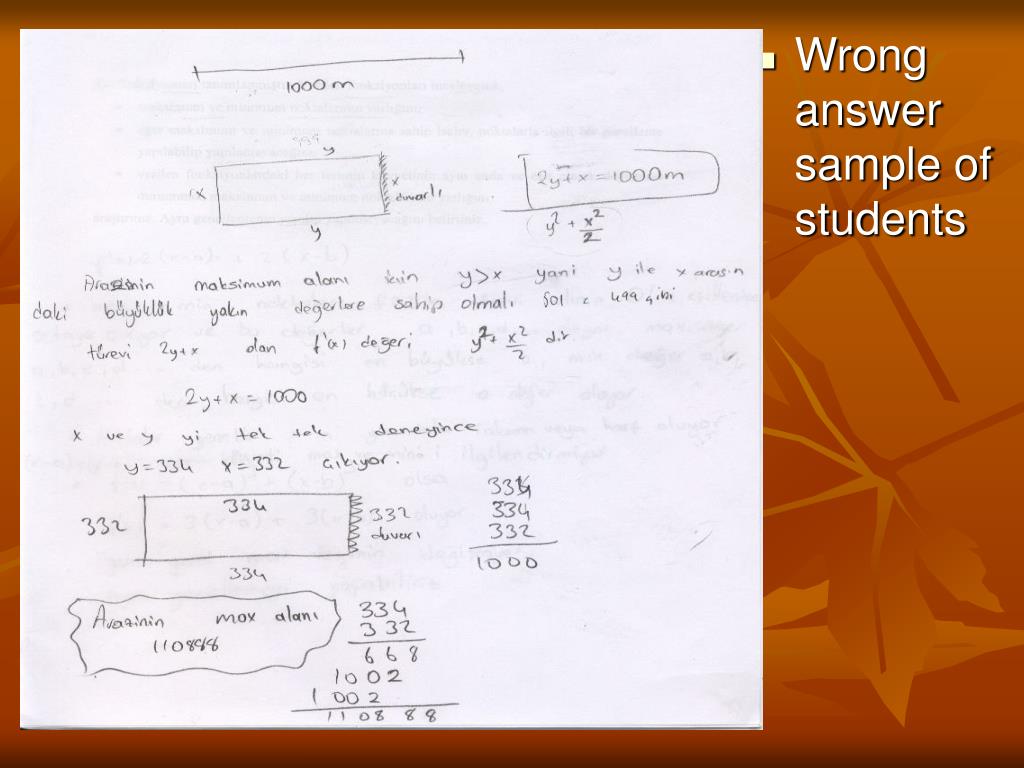 Wrong
answer
sample of
students
1000 m
y
x
x
duvarlı
y
2y+x = 1000m
y² + x²/2
Arazinin maksimum alanı için y>x yani y ile x arasın
daki büyüklük yakın değerlere sahip olmalı
türevi 2y+x olan f'(x) değeri y² + x²/2 dir.
2y+x = 1000
x ve y yi tek tek deneyince
y=334 x=332 çıkıyor.
332
334
332
duvarı
334
334
334
332
1000
Arazinin max alanı
110888
334
332
668
1002
1002
110888